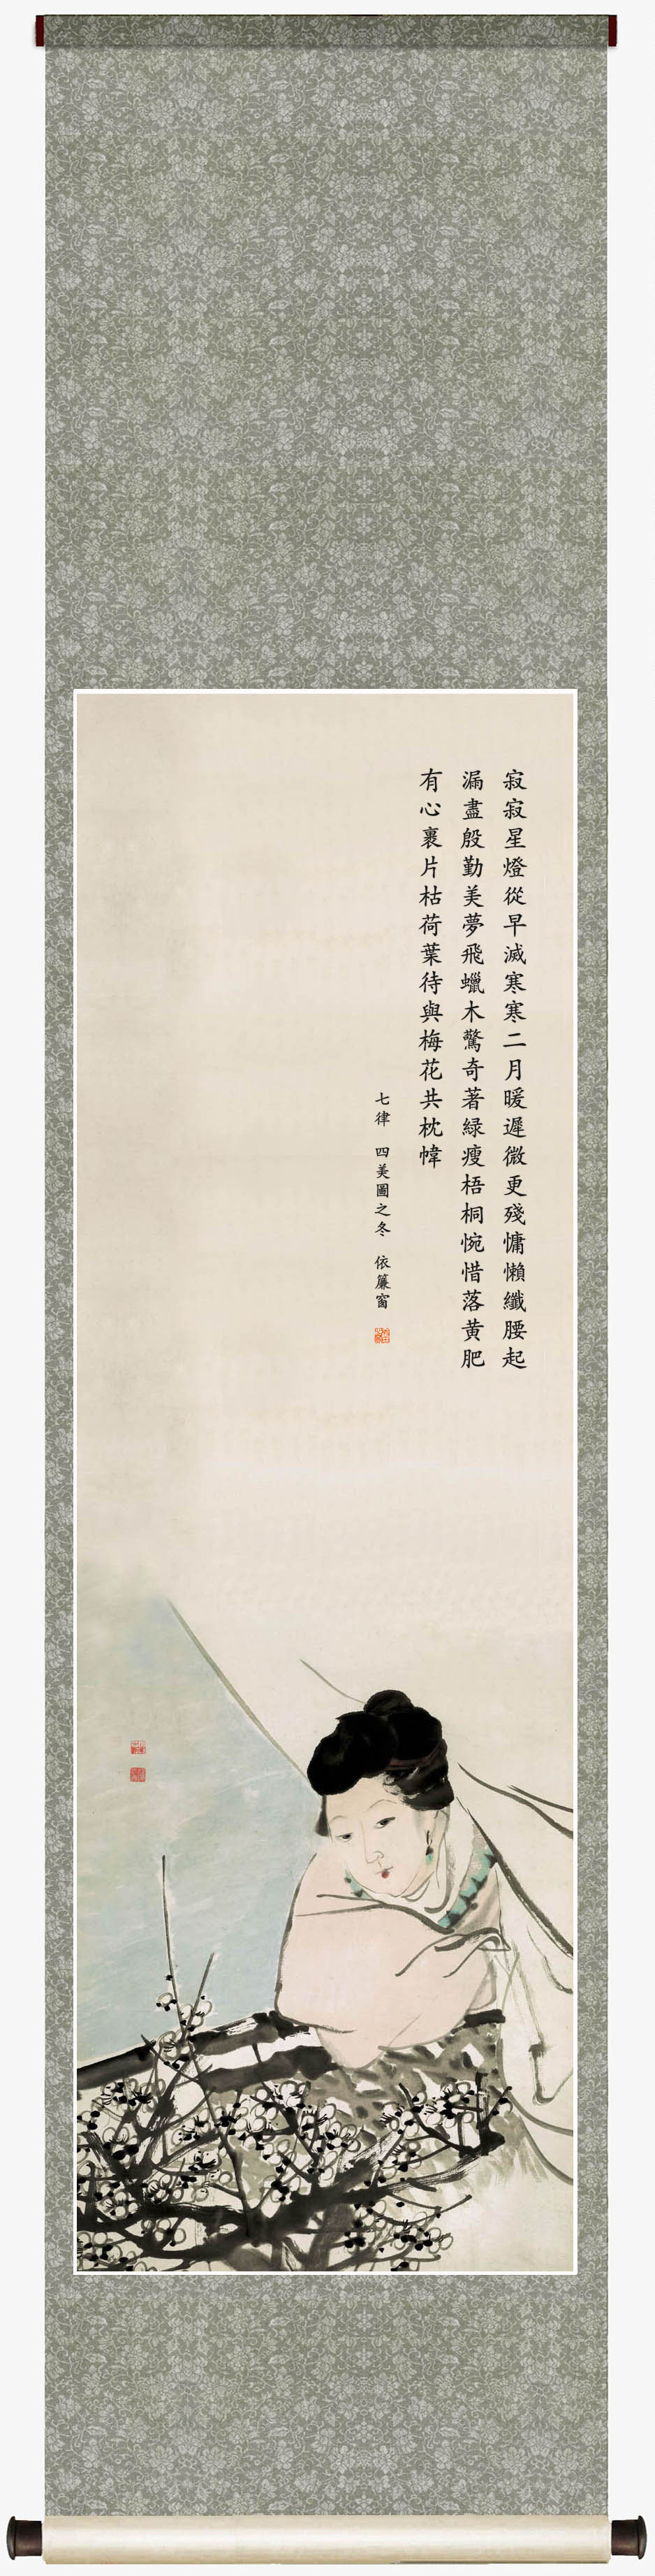 寂寂星燈從早滅寒寒二月暖遲微更殘慵懶纖腰起
漏盡殷勤美夢飛蠟木驚奇著緑瘦梧桐惋惜落黄肥
有心裹片枯荷葉待與梅花共枕幃
七律　四美圖之冬　依簾窗